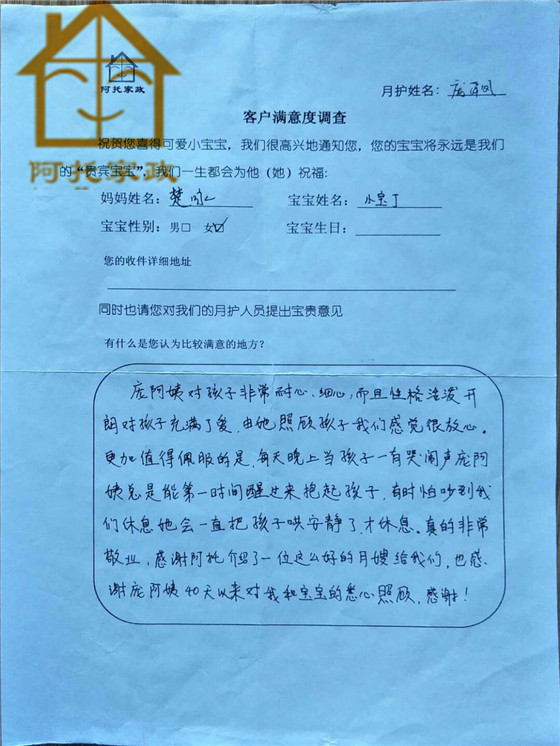 阿托家政
月护姓名：庞
客户满意度调查
祝贺您喜得可爱小宝宝，我们很高兴地通知您，您的宝宝将永远是我们
阿托家政
的“贵宾宝宝”。我们一生都会为他（她）祝福：
妈妈姓名：楚
宝宝姓名：小宝丁
宝宝性别：男□ 女☑
宝宝生日：
您的收件详细地址
同时也请您对我们的月护人员提出宝贵意见
有什么是您认为比较满意的地方？
庞阿姨对孩子非常耐心、细心，而且性格活泼开
朗对孩子充满了爱，由她照顾孩子我们感觉很放心。
更加值得佩服的是，每天晚上当孩子一有哭闹声庞阿
姨总是能第一时间醒过来抱起孩子，有时怕吵到我
们休息她会一直把孩子哄安静了，才休息。真的非常
敬业，感谢阿托介绍了一位这么好的月嫂给我们，也感
谢庞阿姨40天以来对我和宝宝的悉心照顾，感谢！